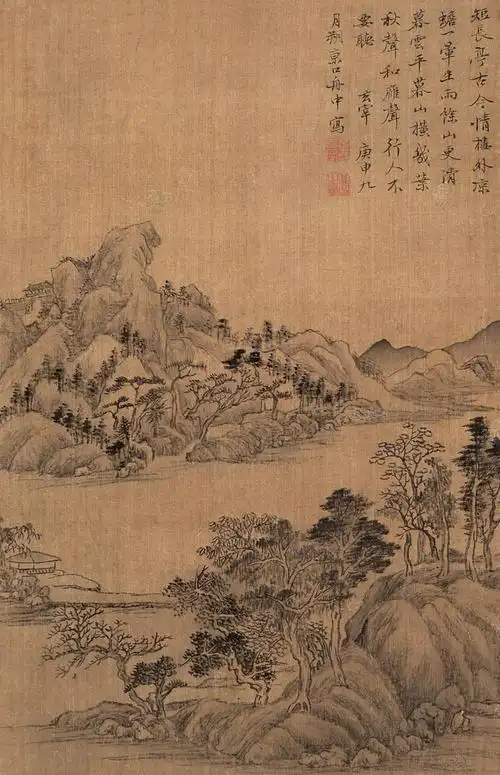 短長亭古今情樓外涼
蟾一暈生雨餘山更清
暮雲平暮山橫幾葉
秋聲和雁聲行人不
要聽 玄宰 庚申九
月朔京口舟中寫